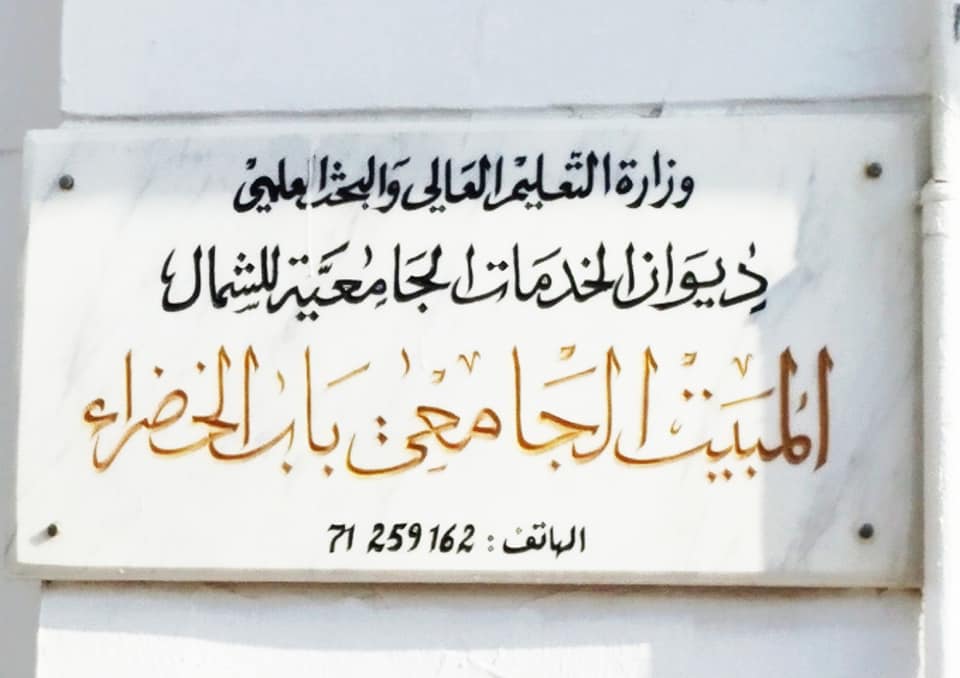 وزارة التعليم العالي والبحث العلمي
ديوان الخدمات الجامعية للشمال
المبيت الجامعي باب الخضراء
الهاتف : 71 259 162